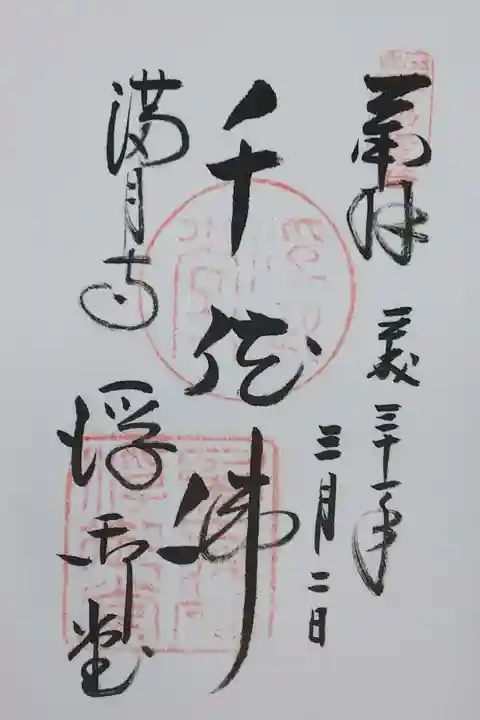 奉拝
平成三十一年
三月二日
千体佛
満月寺
浮御堂